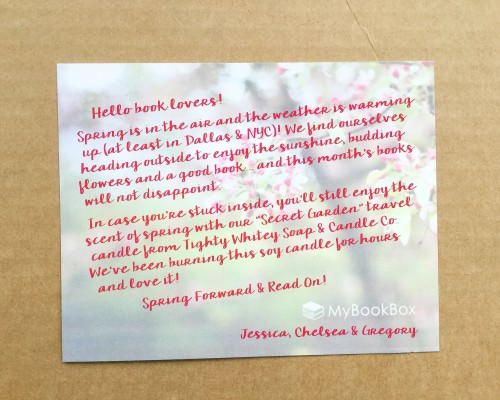 Hello book lovers!
Spring is in the air and the weather is warming
up (at least in Dallas & NYC)! We find ourselves
heading outside to enjoy the sunshine, budding
flowers and a good book... and this month's books
will not disappoint.
In case you're stuck inside, you'll still enjoy the
scent of spring with our "Secret Garden" travel
candle from Tighty Whitey Soap & Candle Co.
We've been burning this soy candle for hours
and love it!
Spring Forward & Read On!
MyBookBox
Jessica, Chelsea & Gregory